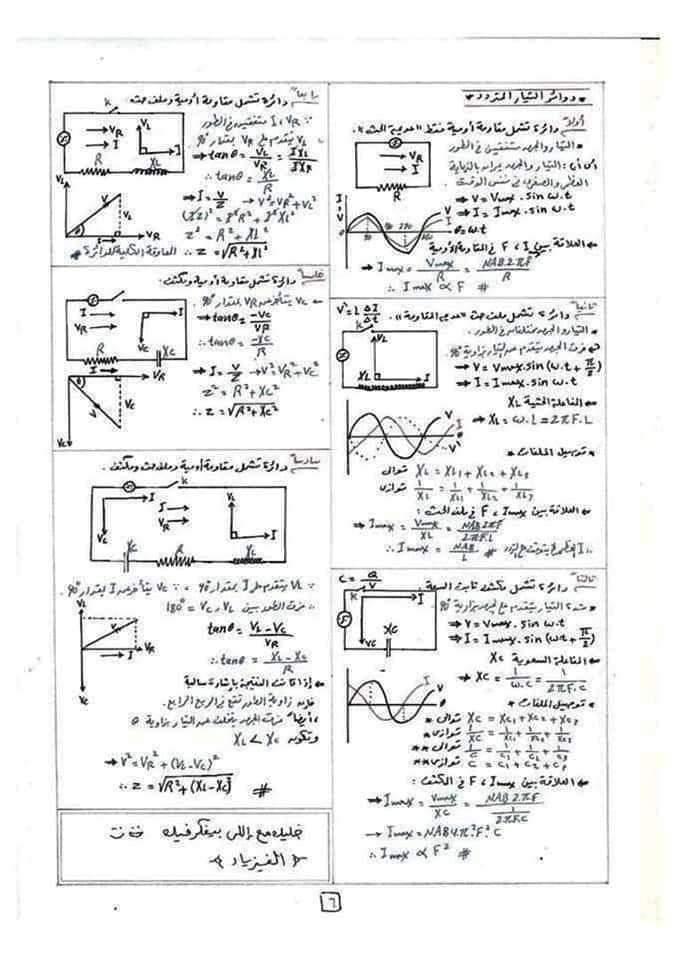 * دوائر التيار المتردد *
أولاً دائرة تشمل مقاومة أومية فقط "عديمة الحث".
* التيار والجهد متفقين فى الطور
K
VR
I
R
→ V = Vmax . sin ω.t
→ I = Imax . sin ω.t
I
V
θ = ω.t
* العلاقة بين I ، F فى المقاومة الأومية
→ Imax = Vmax / R = NAB 2πF / R
∴ Imax ∝ F #
ثانياً دائرة تشمل ملف حث "عديم المقاومة".
V = L ΔI / Δt
* التيار والجهد مختلفان فى الطور.
K
VL
XL
I
فرق الجهد يتقدم عن التيار بزاوية 90°
→ V = Vmax . sin (ω.t + π/2)
→ I = Imax . sin ω.t
* المفاعلة الحثية XL
→ XL = ω.L = 2πF.L
V
I
θ
* توصيل الملفات :
توالى XL = XL1 + XL2 + XL3
توازى 1/XL = 1/XL1 + 1/XL2 + 1/XL3
* العلاقة بين Imax ، F فى ملف الحث :
→ Imax = Vmax / XL = NAB 2πF / 2πF.L
∴ Imax = NAB / L #
ثالثاً دائرة تشمل مكثف ثابت السعة.
C = Q / V
* شدة التيار يتقدم على الجهد بزاوية 90°
I
VC
XC
→ V = Vmax . sin ω.t
→ I = Imax . sin (ω.t + π/2)
* المفاعلة السعوية XC
→ XC = 1 / ω.C = 1 / 2πF.C
I
V
θ
* توصيل الملفات :
* توالى XC = XC1 + XC2 + XC3
* توازى 1/XC = 1/XC1 + 1/XC2 + 1/XC3
** توالى 1/C = 1/C1 + 1/C2 + 1/C3
** توازى C = C1 + C2 + C3
* العلاقة بين Imax ، F فى المكثف :
→ Imax = Vmax / XC = NAB 2πF / (1 / 2πF.C)
→ Imax = NAB 4π².F².C
∴ Imax ∝ F² #
رابعاً دائرة تشمل مقاومة أومية وملف حث
K
∵ I ، VR متفقين فى الطور
VL يتقدم على VR بمقدار 90°
VR
I
VL
I
R
XL
→ tanθ = VL / VR = IXL / IXR
∴ tanθ = XL / R
→ I = V / Z → V² = VR² + VL²
(IZ)² = I²R² + I²XL²
Z² = R² + XL²
VL
V
VL
θ
I
VR
المعاوقة الكلية للدائرة ∴ Z = √R² + XL²
خامساً دائرة تشمل مقاومة أومية ومكثف.
VC يتأخر عن VR بمقدار 90°
I
VR
I
VC
R
XC
→ tanθ = -VC / VR
∴ tanθ = -XC / R
→ I = V / Z → V² = VR² + VC²
Z² = R² + XC²
∴ Z = √R² + XC²
I
VR
θ
V
VC
VC
سادساً دائرة تشمل مقاومة أومية وملف حث ومكثف.
K
I
VC
I
VR
VL
I
XC
R
XL
∵ VL يتقدم على I بمقدار 90° ، ∵ VC يتأخر عن I بمقدار 90°
∴ فرق الطور بين VL ، VC = 180°
VL
V
VR
I
VC
tanθ = VL - VC / VR
∴ tanθ = XL - XC / R
* إذا كانت النتيجة بإشارة سالبة
فإن زاوية الطور تقع فى الربع الرابع.
، أيضاً فرق الجهد يتخلف عن التيار بزاوية θ
وتكون XL < XC
→ V² = VR² + (VL - VC)²
∴ Z = √R² + (XL - XC)² #
خليك مع اللى بيفكر فيك
< الفيزياء >
٦